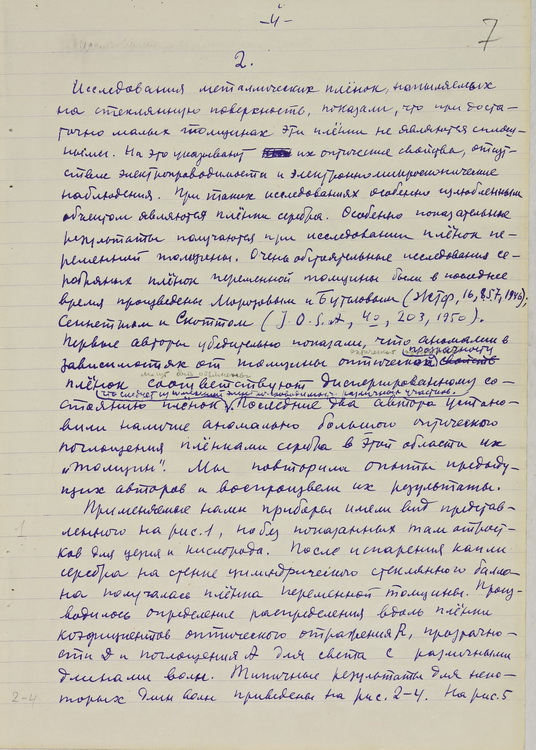 -4-
7
2.
Исследования металлических плёнок, напыляемых
на стеклянную поверхность, показали, что при доста-
точно малых толщинах эти плёнки не являются сплош-
ными. На это указывают их оптические свойства, отсут-
ствие электропроводимости и электронномикроскопические
наблюдения. При таких исследованиях особенно излюбленным
объектом являются плёнки серебра. Особенно показательные
результаты получаются при исследовании плёнок пе-
ременной толщины. Очень обстоятельные исследования се-
ребряных плёнок переменной толщины были в последнее
время произведены Морозовым и Бутиловым (ЖТФ, 16, 857, 1946);
Сеннетом и Скоттом (J.O.S.A, 40, 203, 1950).
Первые авторы убедительно показали, что аномалии в
оптической прозрачности
зависимостях от толщины оптической свойств
плёнок соответствуют диспергированному со-
что следует из измерений электропроводимости различных участков.
стоянию плёнок. Последние два автора устано-
вили наличие аномально большого оптического
поглощения плёнками серебра в этой области их
"толщин". Мы повторили опыты предыду-
щих авторов и воспроизвели их результаты.
Применяемые нами приборы имели вид представ-
1
ленного на рис. 1, но без показанных там отрост-
ков для цезия и кислорода. После испарения капли
серебра на стенке цилиндрического стеклянного балло-
на получалась плёнка переменной толщины. Произ-
водилось определение распределения вдоль плёнки
коэфициентов оптического отражения R, прозрачно-
сти D и поглощения A для света с различными
длинами волн. Типичные результаты для неко-
2-4
торых длин волн приведены на рис. 2-4. На рис. 5